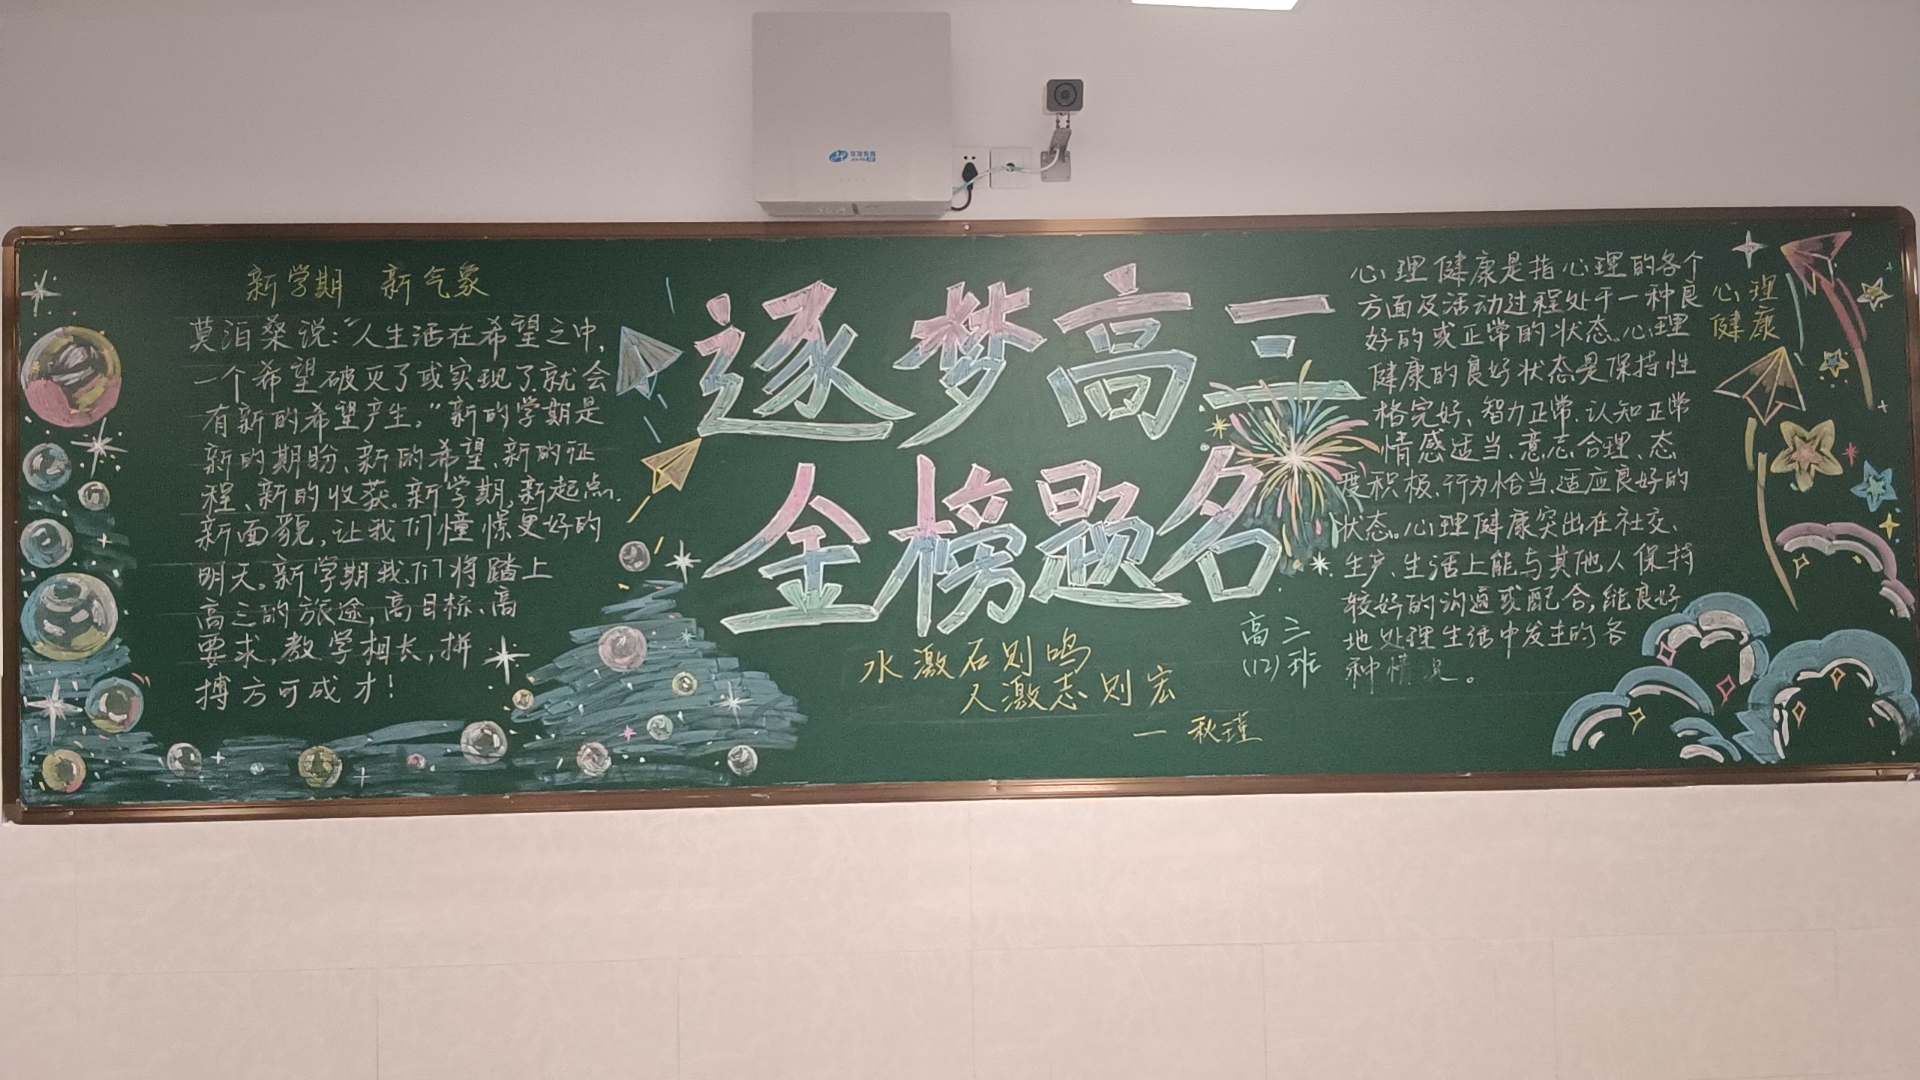 新学期 新气象
莫泊桑说:“人生活在希望之中,
一个希望破灭了或实现了就会
有新的希望产生。”新的学期是
新的期盼、新的希望、新的征
程、新的收获。新学期,新起点.
新面貌,让我们憧憬更好的
明天。新学期我们将踏上
高三的旅途,高目标、高
要求,教学相长,拼
搏方可成才!
逐梦高三
金榜题名
水激石则鸣
人激志则宏
— 秋瑾
高三
(12)班
心理
健康
心理健康是指心理的各个
方面及活动过程处于一种良
好的或正常的状态。心理
健康的良好状态是保持性
格完好、智力正常、认知正常
情感适当、意志合理、态
度积极、行为恰当、适应良好的
状态。心理健康突出在社交、
生产、生活上能与其他人保持
较好的沟通或配合,能良好
地处理生活中发生的各
种情况。